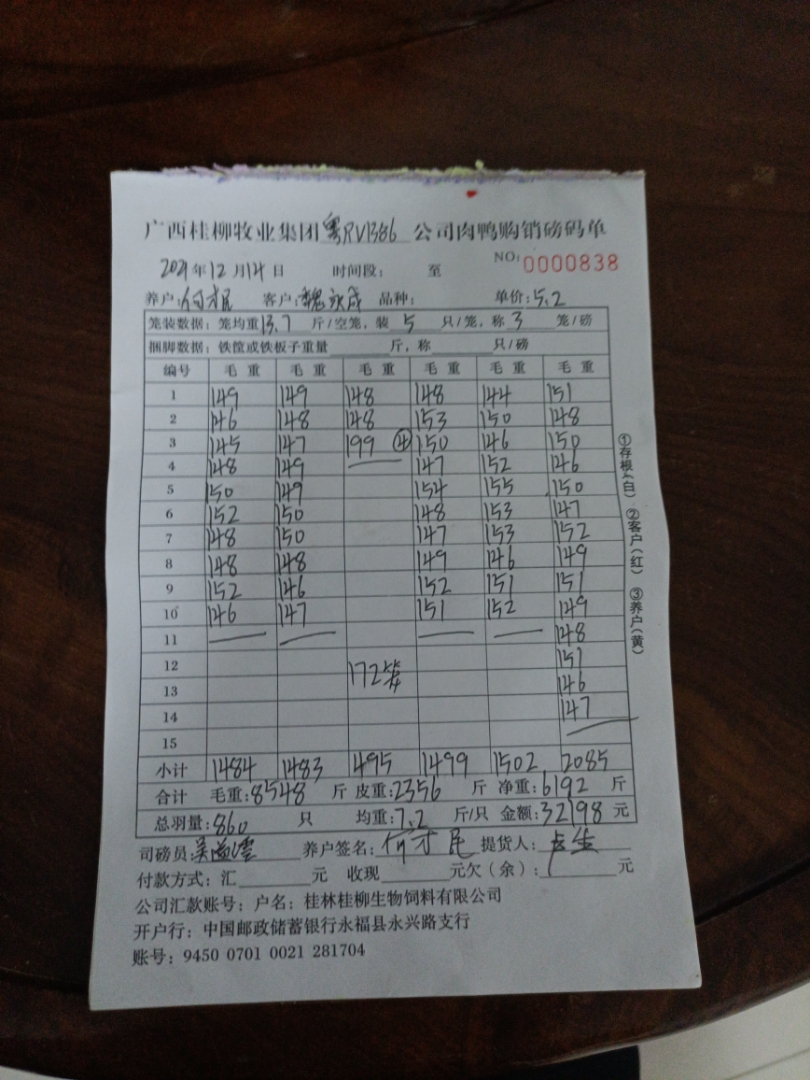 广西桂柳牧业集团粤RV1386公司肉鸭购销磅码单
2021年12月14日 时间段: 至 NO:0000838
养户: 客户:魏 成 品种: 单价:5.2
笼装数据:笼均重13.7斤/空笼,装5只/笼,称3笼/磅
捆脚数据:铁筐或铁板子重量 斤,称 只/磅
编号 毛重 毛重 毛重 毛重 毛重 毛重
1 149 149 148 148 144 151
2 146 148 148 153 150 148
3 145 147 199 ④ 150 146 150
4 148 149 147 152 146
5 150 149 154 155 150
6 152 150 148 153 147
7 148 150 147 153 152
8 148 148 149 146 149
9 152 146 152 151 151
10 146 147 151 152 149
11 148
12 151
172笼
13 146
14 147
15
小计 1484 1483 495 1499 1502 2085
合计 毛重:8548斤 皮重:2356斤 净重:6192斤
总羽量:860只 均重:7.2斤/只 金额:32198元
司磅员:吴 养户签名: 提货人:
付款方式:汇 元 收现 元欠(余): 元
公司汇款账号:户名:桂林桂柳生物饲料有限公司
开户行:中国邮政储蓄银行永福县永兴路支行
账号:9450 0701 0021 281704
①存根(白) ②客户(红) ③养户(黄)